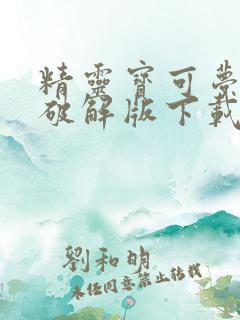 精靈寶可夢
破解版下載
劉和明
未經同意禁止轉載